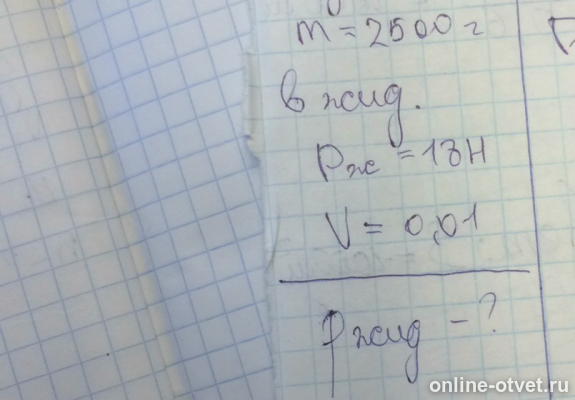 m = 2500 г
в жид.
Pж = 18H
V = 0,01
ρ жид - ?
online-otvet.ru